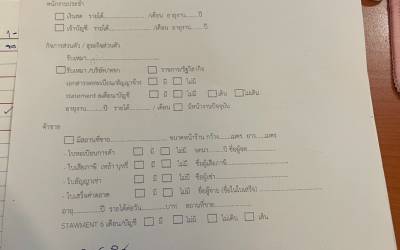 พนักงานประจำ
☐ เงินสด รายได้......................../เดือน อายุงาน......ปี
☐ เข้าบัญชี รายได้......................../เดือน อายุงาน......ปี
กิจการส่วนตัว / ธุรกิจส่วนตัว
รับเหมา
☐ รับเหมา/บริษัท/หจก ☐ ราชการ/รัฐวิสาหกิจ
เอกสารจดทะเบียน/สัญญาจ้าง ☐ มี ☐ ไม่มี
statement 6เดือน/บัญชี ☐ มี ☐ ไม่มี ☐ เดิน ☐ ไม่เดิน
อายุงาน........ปี รายได้............../ เดือน ☐ มีหน้างานปัจจุบัน
ค้าขาย
☐ มีสถานที่ขาย....................ขนาดหน้าร้าน กว้าง......เมตร ยาว......เมตร
- ใบทะเบียนการค้า ☐ มี ☐ ไม่มี จดมา........ปี ชื่อผู้จด................
- ใบเสียภาษี เหล้า บุหรี่ ☐ มี ☐ ไม่มี ชื่อผู้เสียภาษี......................
- ใบสัญญาเช่า ☐ มี ☐ ไม่มี ชื่อผู้เช่า..............................
- ใบเสร็จค่าตลาด ☐ มี ☐ ไม่มี ชื่อผู้จ่าย (ชื่อในใบเสร็จ)..................
อายุ............ปี รายได้ต่อวัน..............บาท สถานที่ขาย........................
STAWMENT 6 เดือน/บัญชี ☐ มี ☐ ไม่มี ☐ ไม่เดิน ☐ เดิน